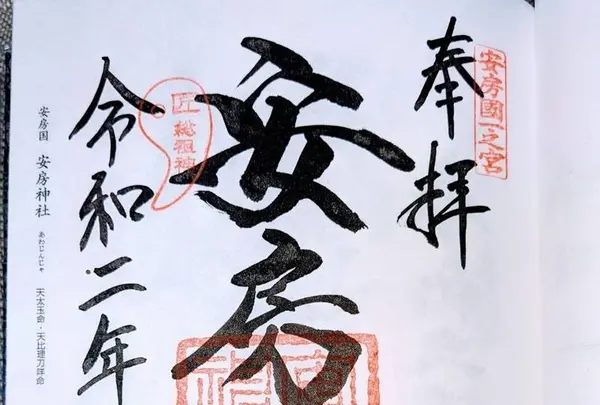 奉拝
安房國一之宮
安房
匠総祖神
令和二年
安房国 安房神社 あわじんじゃ 天太玉命・天比理刀咩命